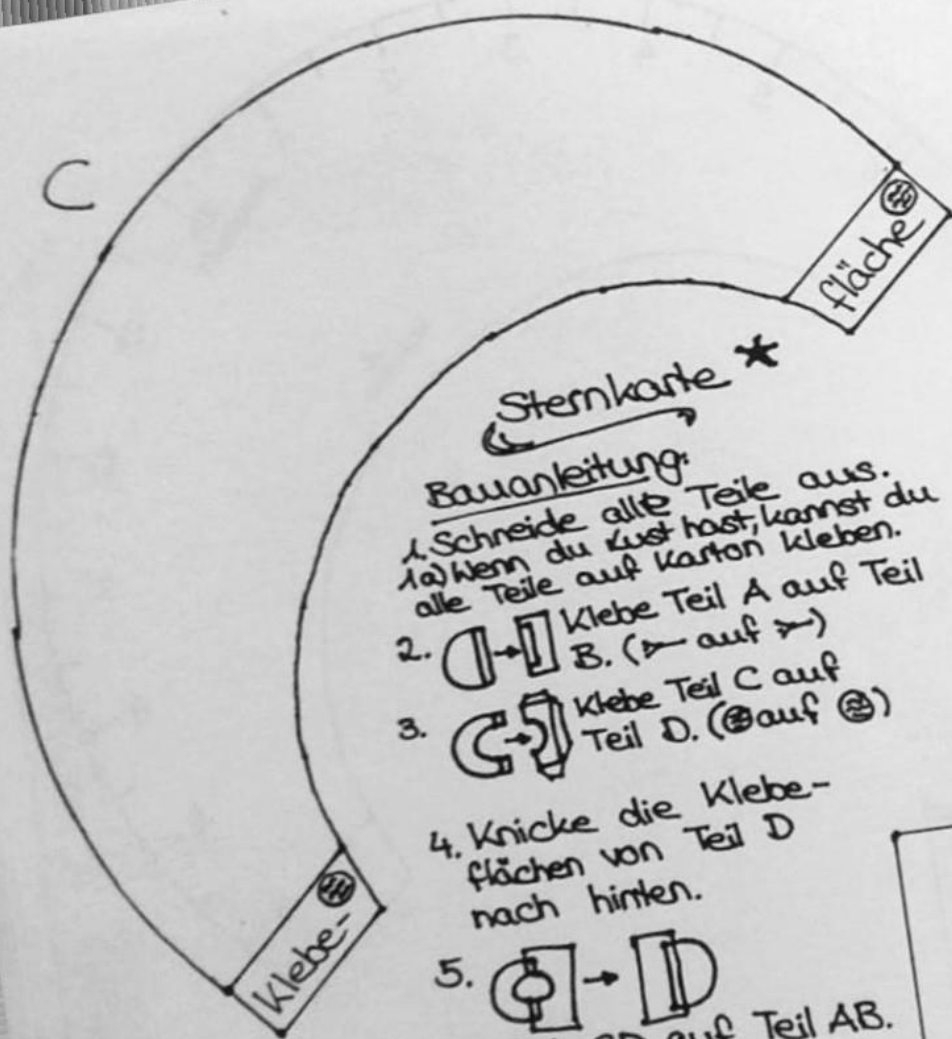 C
fläche
Sternkarte
Bauanleitung:
1. Schreide alle Teile aus.
1a) Wenn du Lust hast, kannst du
alle Teile auf Karton kleben.
2. Klebe Teil A auf Teil
B. ( auf )
3. Klebe Teil C auf
Teil D. ( auf )
4. Knicke die Klebe-
flächen von Teil D
nach hinten.
5.
CD auf Teil AB.
Klebe-